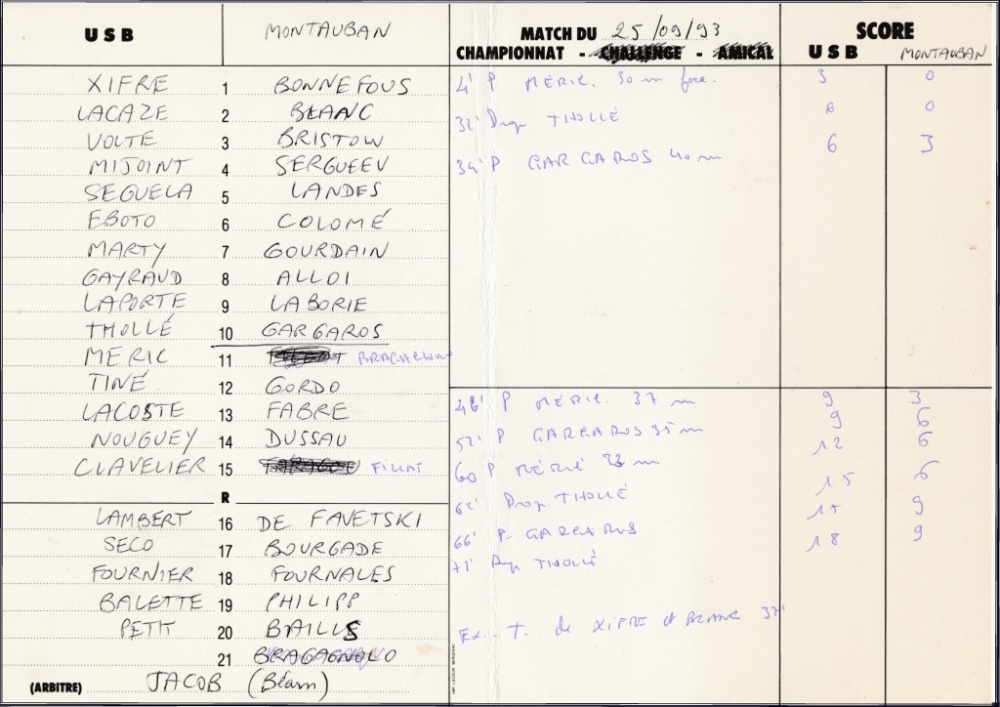 USB MONTAUBAN MATCH DU 25/09/93 SCORE
CHAMPIONNAT - CHALLENGE - AMICAL USB MONTAUBAN
XIFRE 1 BONNEFOUS
LACAZE 2 BLANC
VOLTE 3 BRISTOW
MIJOINT 4 SERGUEEV
SEGUELA 5 LANDES
EBOTO 6 COLOMÉ
MARTY 7 GOURDAIN
GAYRAUD 8 ALLOI
LAPORTE 9 LABORIE
THOLLÉ 10 GARGAROS
MERIC 11
TINÉ 12 GORDO
LACOSTE 13 FABRE
NOUGUEY 14 DUSSAU
CLAVELIER 15 FILLAT
R
LAMBERT 16 DE FAVETSKI
SECO 17 BOURGADE
FOURNIER 18 FOURNALES
BALETTE 19 PHILIPP
PETIT 20 BAILLS
21 BRAGAGNOLO
(ARBITRE) JACOB (Béarn)
4' P MERIC. 30 m face. 3 0
32' Drop THOLLÉ 6 0
34' P GARGAROS 40 m 6 3
46' P MERIC. 37 m 9 3
52' P GARGAROS 35 m 9 6
60 P MERIC 33 m 12 6
62' Drop THOLLÉ 15 6
66' P- GARGAROS 15 9
71' Drop THOLLÉ 18 9
Ex. T. de XIFRE et BLANC 37'